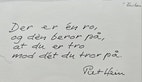 Der er én ro,
og den beror på,
at du er tro
mod dét du tror på.
Piet Hein